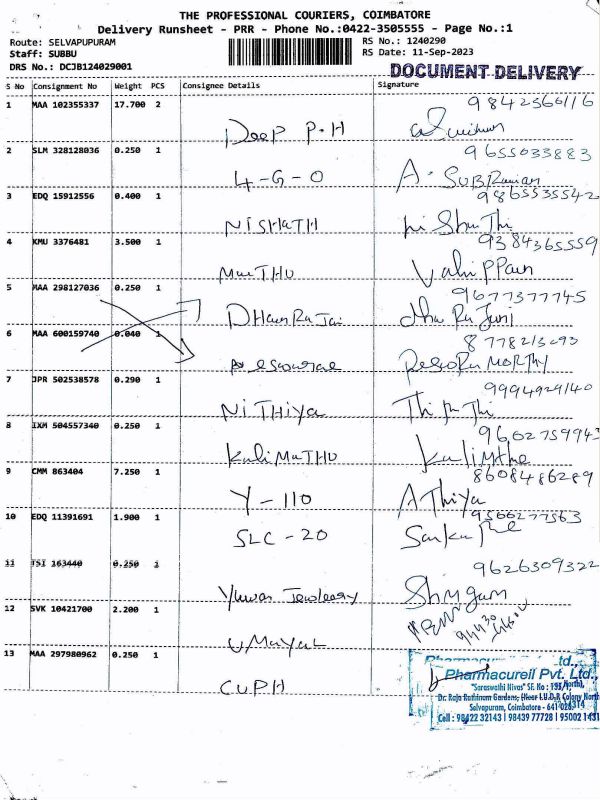 THE PROFESSIONAL COURIERS, COIMBATORE
Delivery Runsheet - PRR - Phone No.:0422-3505555 - Page No.:1
Route: SELVAPUPURAM
Staff: SUBBU
DRS No.: DCJB124029001
RS No.: 1240290
RS Date: 11-Sep-2023
DOCUMENT DELIVERY
S No Consignment No Weight PCS Consignee Details Signature
9842560116
1 MAA 102355337 17.700 2
Deep P.H
9655033883
2 SLM 328128036 0.250 1
4-G-0 A. SUBRamian
9865535542
3 EDQ 15912556 0.400 1
NISHATH
9384365559
4 KMU 3376481 3.500 1
MuTHU
9677377745
5 MAA 298127036 0.250 1
DHanRaJai
6 MAA 600159740 0.040 1
7 JPR 502538578 0.290 1
9994929140
NiTHiya
8 IXM 504557340 0.250 1
9602759943
KaliMuTHU
9 CMM 863404 7.250 1
8608486289
Y-110 AThiya
10 EDQ 11391691 1.900 1
9566277563
SLC-20
11 TSI 163440 0.250 1
9626309322
Yuvan Jewleary
12 SVK 10421700 2.200 1
UMayaL
13 MAA 297980962 0.250 1
C.U.P.H
Pharmacureil Pvt. Ltd.,
"Saraswathi Nivas" SF. No : 155/1,
Dr. Raja Rathinam Gardens, (Near I.U.D.R Colony North)
Selvapuram, Coimbatore - 641 026.
Cell : 98422 32143 | 98439 77728 | 95002 1431